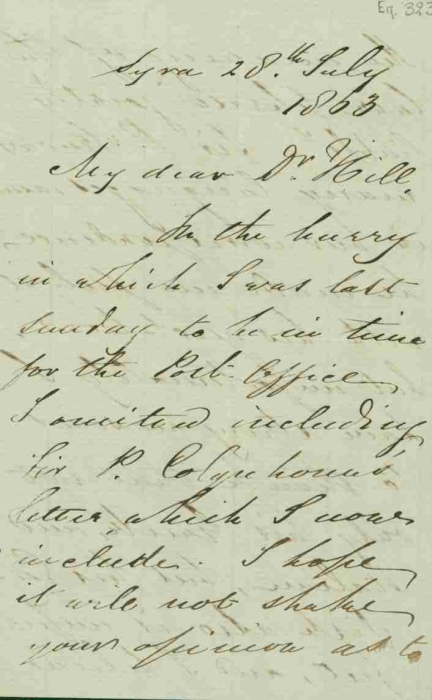 Eq. 323
Syra 28.th July
1863
My dear Dr. Hill,
In the hurry
in which I was last
sunday to be in time
for the Post Office
I omitted including
Sir P. Colquhouns'
letter, which I now
include. I hope
it will not shake
your opinion as to